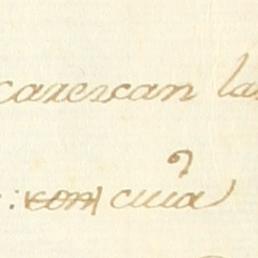 carescan la
: con cuia